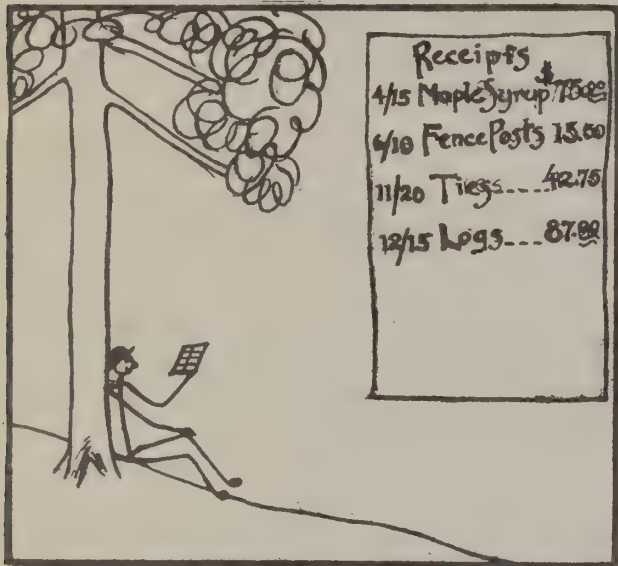 Receipts
4/15 Maple Syrup $75.00
6/10 Fence Posts 15.50
11/20 Ties.... 42.75
12/15 Logs... 87.00